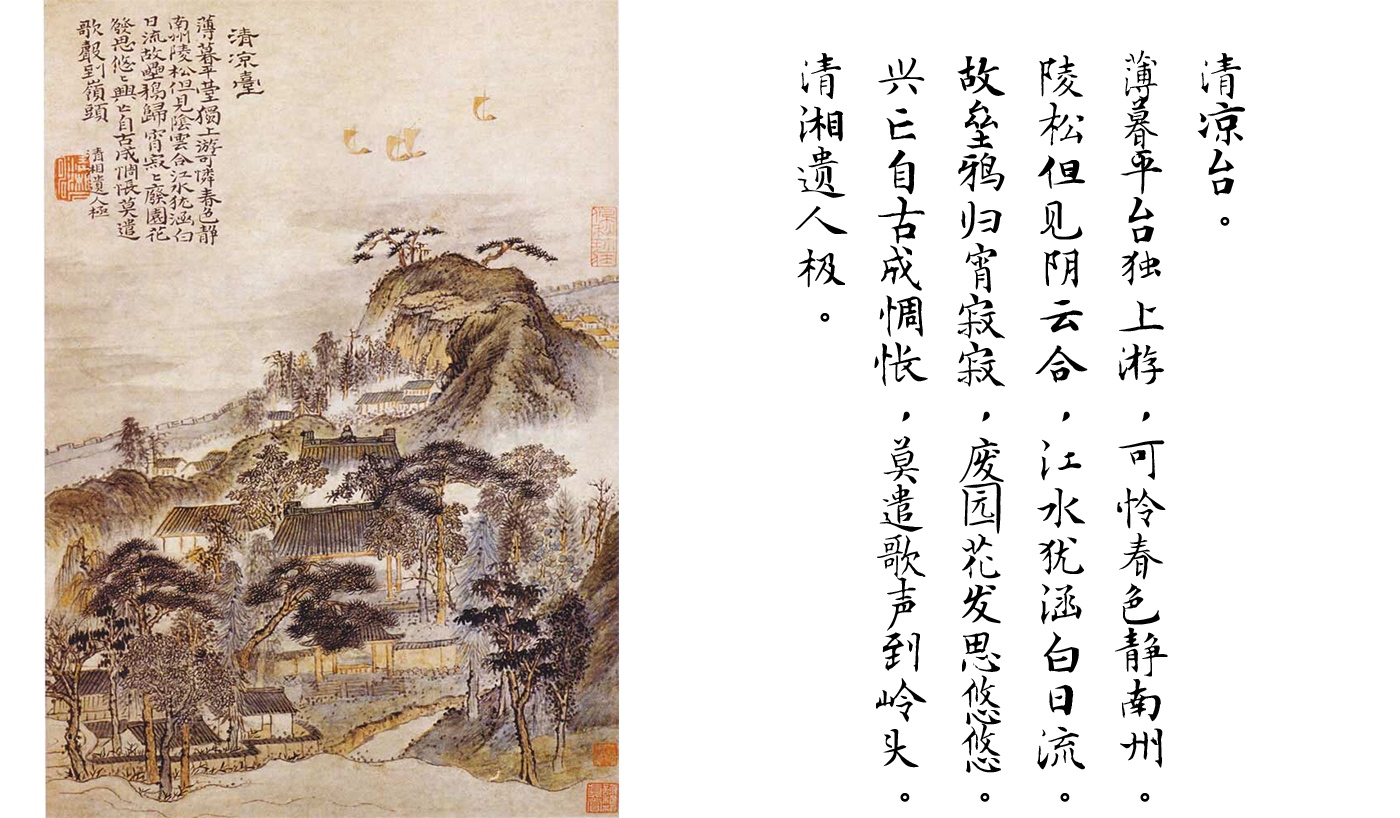 清凉臺
薄暮平臺獨上游可憐春色靜
南州陵松但見陰雲合江水犹涵白
日流故壘鴉歸宵寂〻廢園花
發思悠〻興亡自古成惆悵莫遣
歌聲到嶺頭
清湘遺人極
清凉台。
薄暮平台独上游，可怜春色静南州。
陵松但见阴云合，江水犹涵白日流。
故垒鸦归宵寂寂，废园花发思悠悠。
兴亡自古成惆怅，莫遣歌声到岭头。
清湘遗人极。